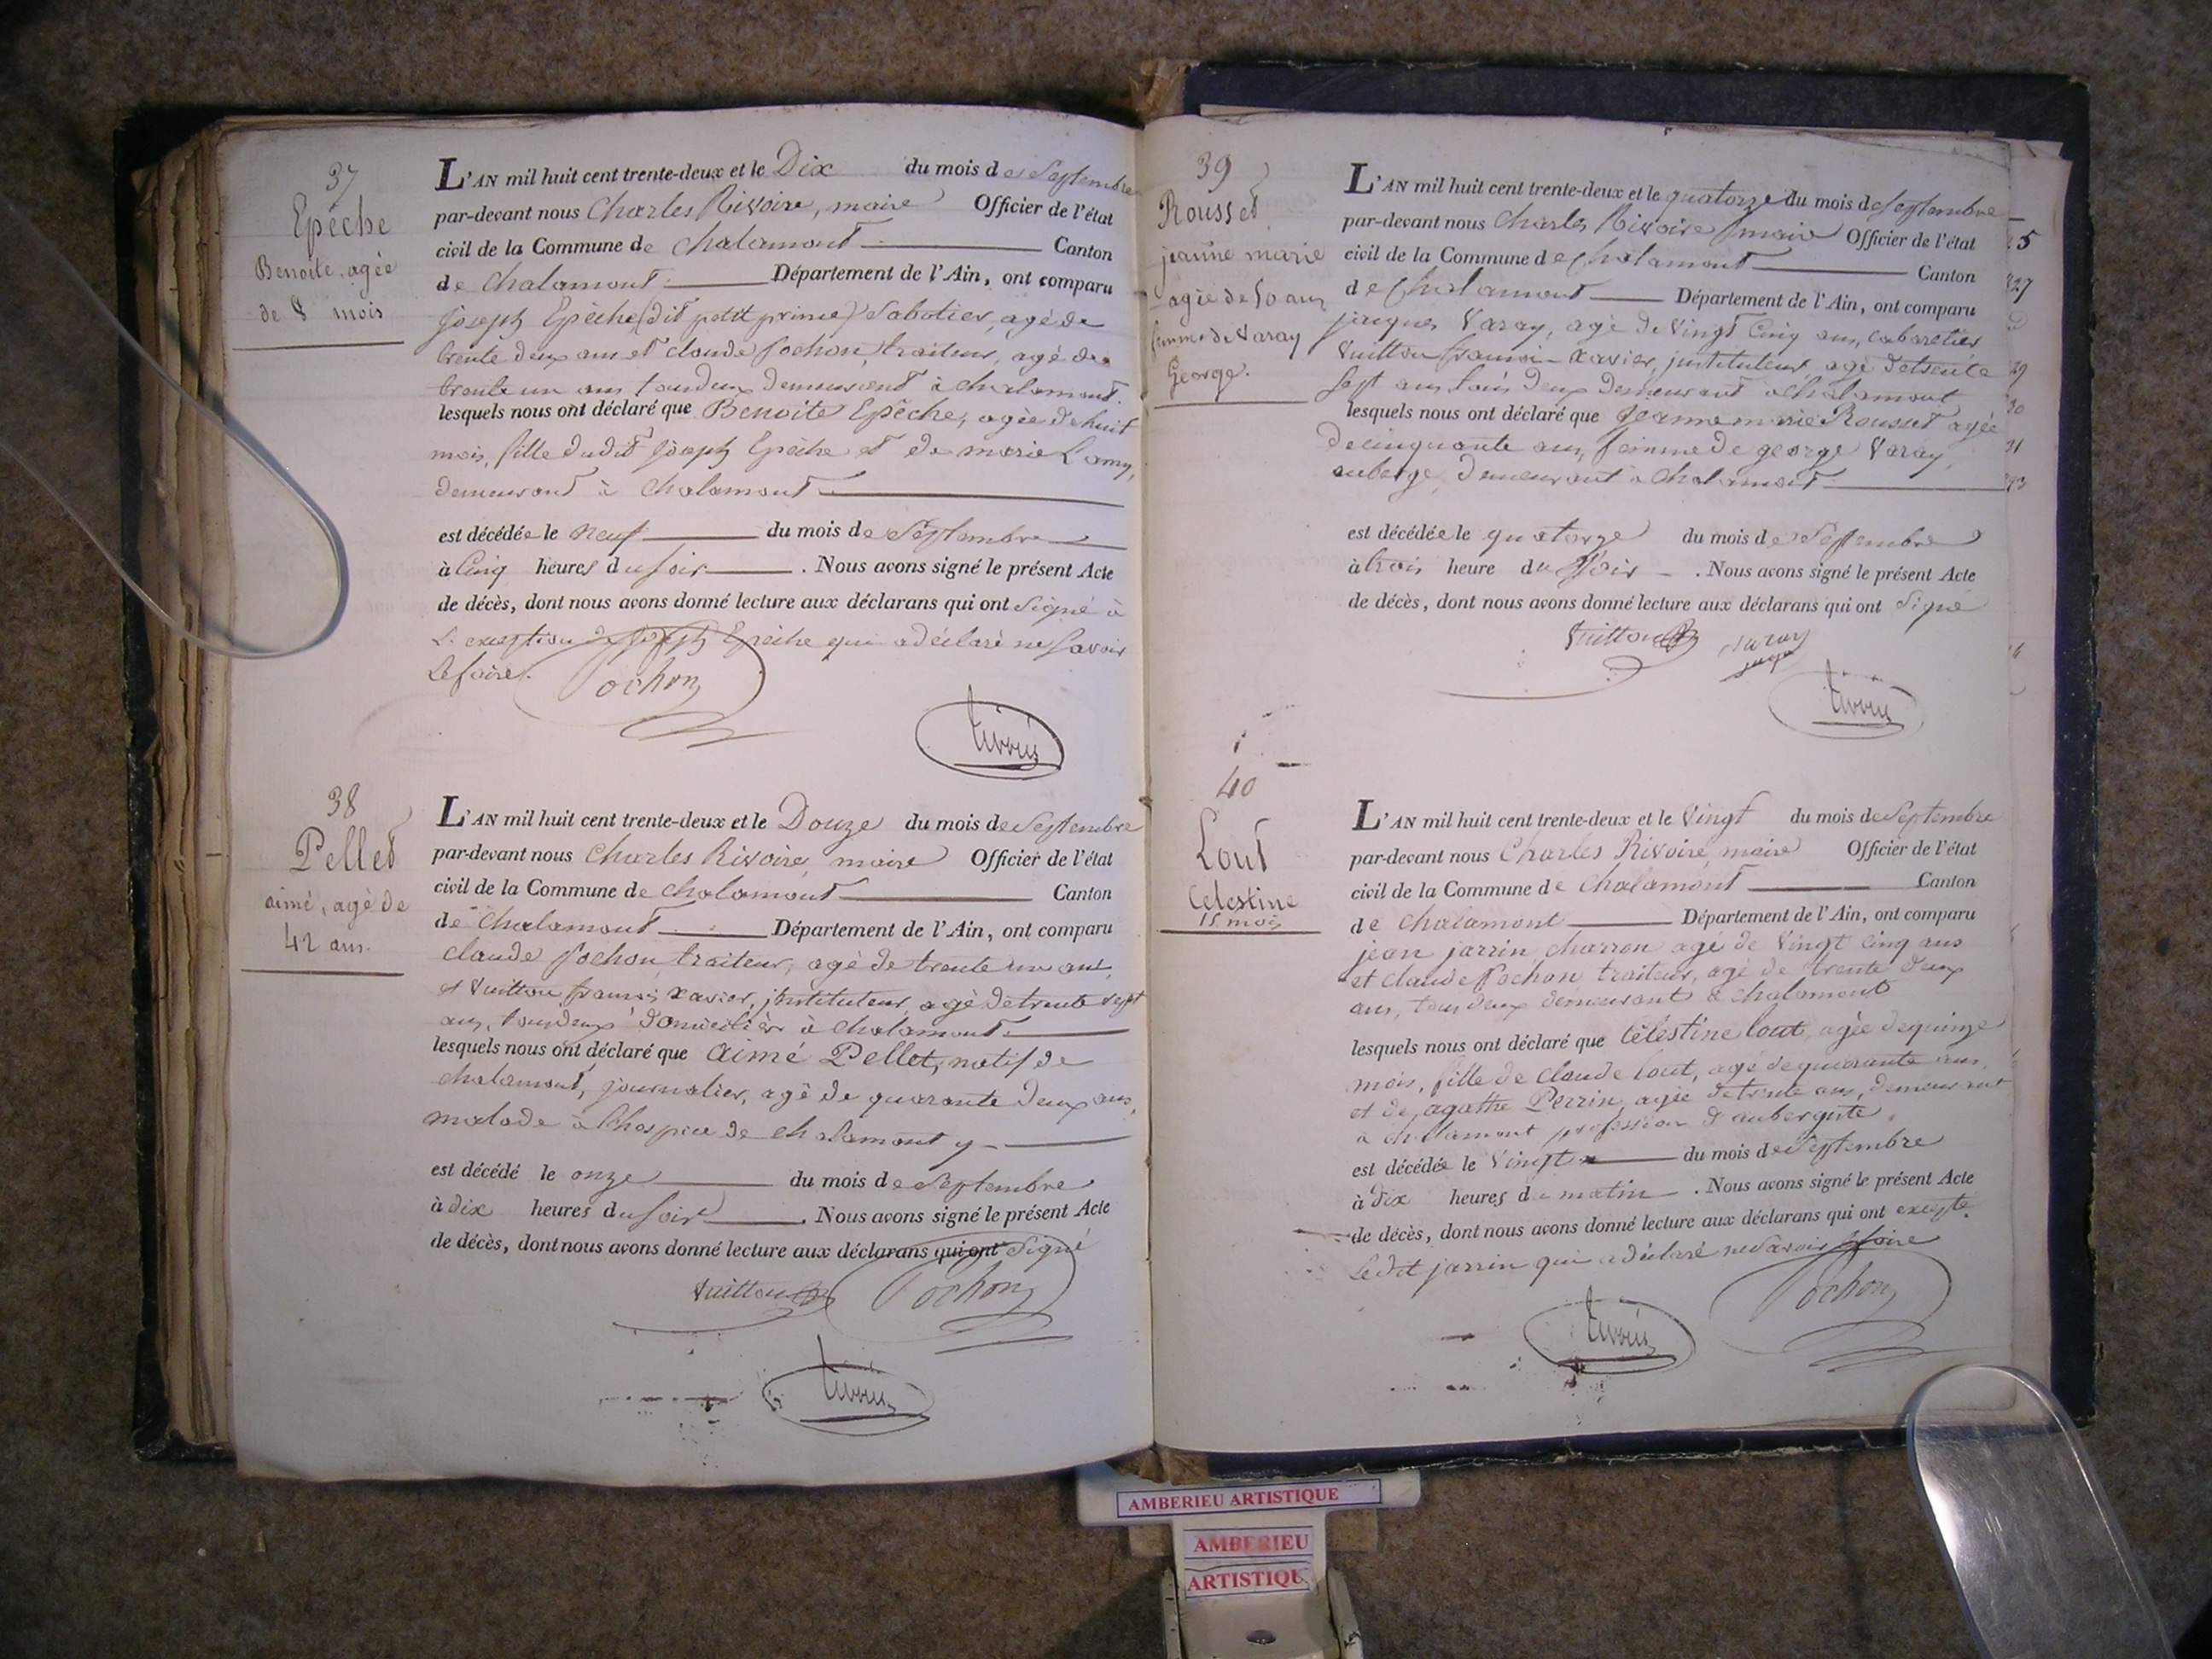 37
Epèche
Benoite, agée
de 8 mois
L'AN mil huit cent trente-deux et le Dix du mois de Septembre
par-devant nous Charles Rivoire, maire Officier de l'état
civil de la Commune de Chalamont Canton
de Chalamont Département de l'Ain, ont comparu
Joseph Epèche (dit petit prince) Sabotier, agé de
trente deux ans et claude Pochon, traiteur, agé de
trente un ans tous deux demeurant à chalamont.
lesquels nous ont déclaré que Benoite Epèche, agée de huit
mois, fille dudit Joseph Epèche et de marie Lamy,
demeurant à Chalamont
est décédée le neuf du mois de Septembre
à Cinq heures du soir. Nous avons signé le présent Acte
de décès, dont nous avons donné lecture aux déclarans qui ont signé à
L'exception de Joseph Epèche qui a déclaré ne savoir
le faire.
Pochon
38
Pellet
aimé, agé de
42 ans.
L'AN mil huit cent trente-deux et le Douze du mois de Septembre
par-devant nous Charles Rivoire, maire Officier de l'état
civil de la Commune de chalamont Canton
de Chalamont Département de l'Ain, ont comparu
claude Pochon, traiteur, agé de trente un ans,
et Vuitton françois Xavier, instituteur, agé de trente sept
ans, tous deux domiciliés à chalamont.
lesquels nous ont déclaré que Aimé Pellet, natif de
chalamont, journalier, agé de quarante deux ans,
malade à l'hospice de chalamont y
est décédé le onze du mois de Septembre
à dix heures du soir. Nous avons signé le présent Acte
de décès, dont nous avons donné lecture aux déclarans qui ont signé
Vuitton Pochon
39
Rousset
jeanne marie
agée de 50 ans
femme de Varay
George.
L'AN mil huit cent trente-deux et le quatorze du mois de Septembre
par-devant nous Charles Rivoire maire Officier de l'état
civil de la Commune de Chalamont Canton
de Chalamont Département de l'Ain, ont comparu
jacques Varay, agé de Vingt Cinq ans, cabaretier
Vuitton françois Xavier, instituteur, agé de trente
sept ans, tous deux demeurant à Chalamont
lesquels nous ont déclaré que Jeanne marie Rousset agée
de cinquante ans, femme de george Varay,
auberge, demeurant à Chalamont
est décédée le quatorze du mois de Septembre
à trois heure du Soir. Nous avons signé le présent Acte
de décès, dont nous avons donné lecture aux déclarans qui ont Signé
Vuitton Varay
40
Lout
Celestine
15 mois
L'AN mil huit cent trente-deux et le Vingt du mois de Septembre
par-devant nous Charles Rivoire, maire Officier de l'état
civil de la Commune de Chalamont Canton
de Chalamont Département de l'Ain, ont comparu
jean jarrin charron agé de Vingt Cinq ans
et Claude Pochon traiteur, agé de trente deux
ans, tous deux demeurant à chalamont
lesquels nous ont déclaré que Célestine Lout, agée de quinze
mois, fille de Claude Lout, agé de quarante ans,
et de agathe Perrin agée de trente ans, demeurant
à chalamont profession d'aubergiste.
est décédée le Vingt du mois de Septembre
à Dix heures du matin. Nous avons signé le présent Acte
de décès, dont nous avons donné lecture aux déclarans qui ont excepté
Ledit jarrin qui a déclaré ne savoir le faire
Pochon
AMBERIEU ARTISTIQUE
AMBERIEU
ARTISTIQUE